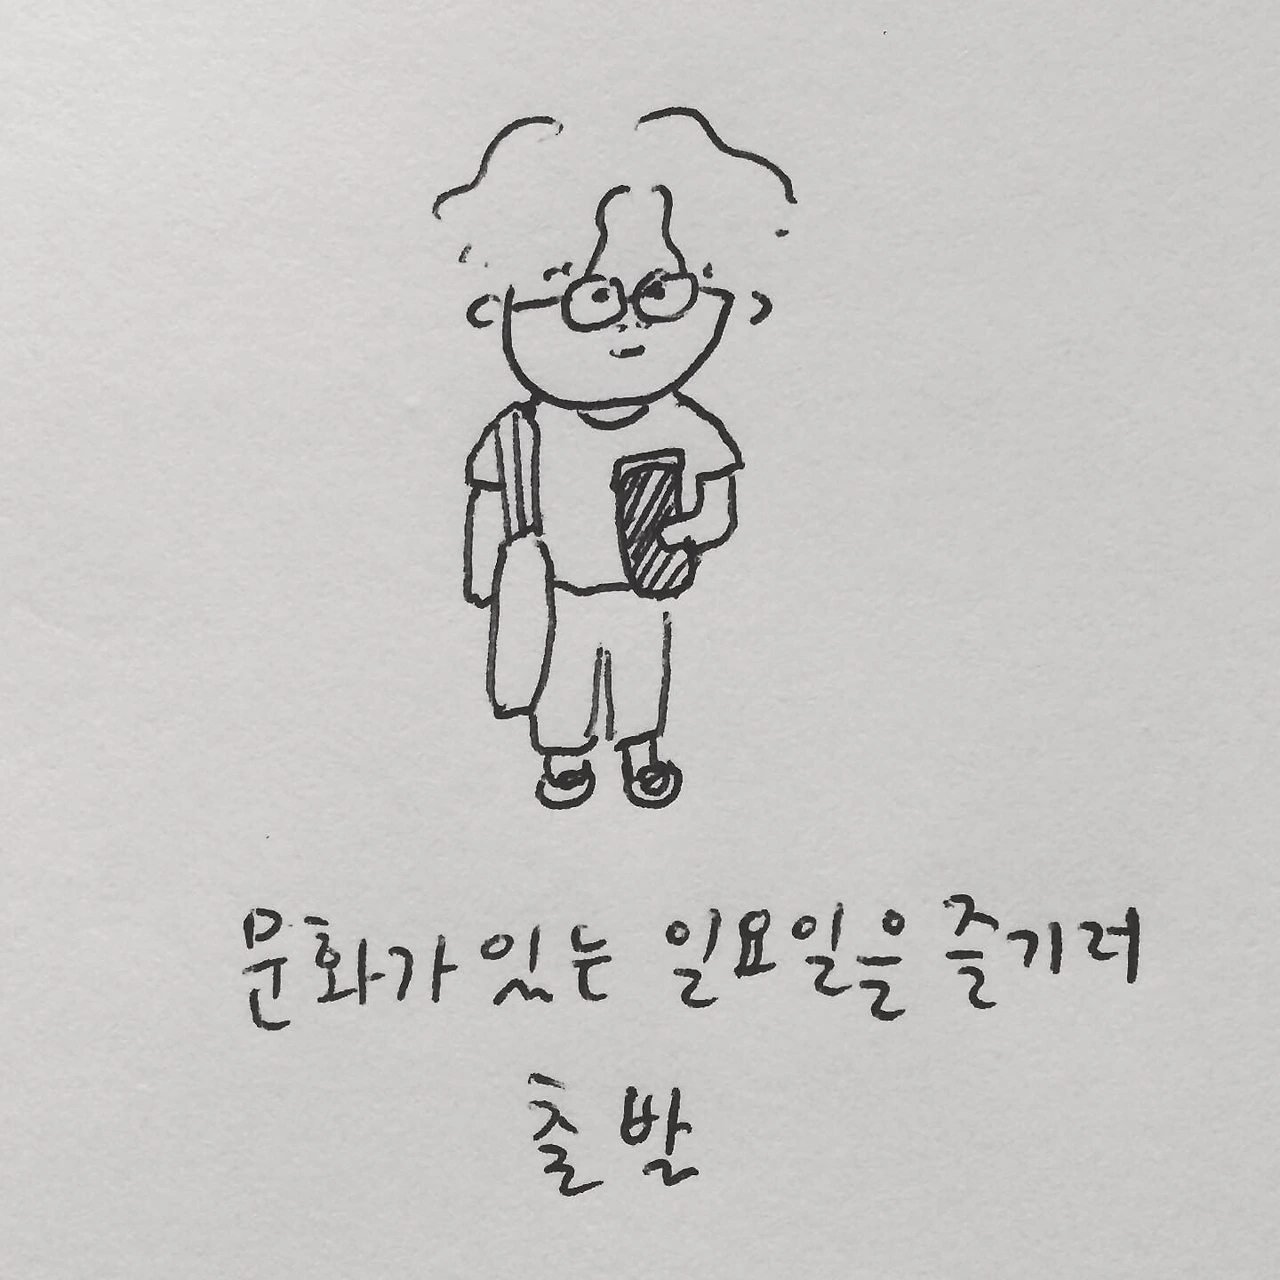 문화가 있는 일요일을 즐기러
출발